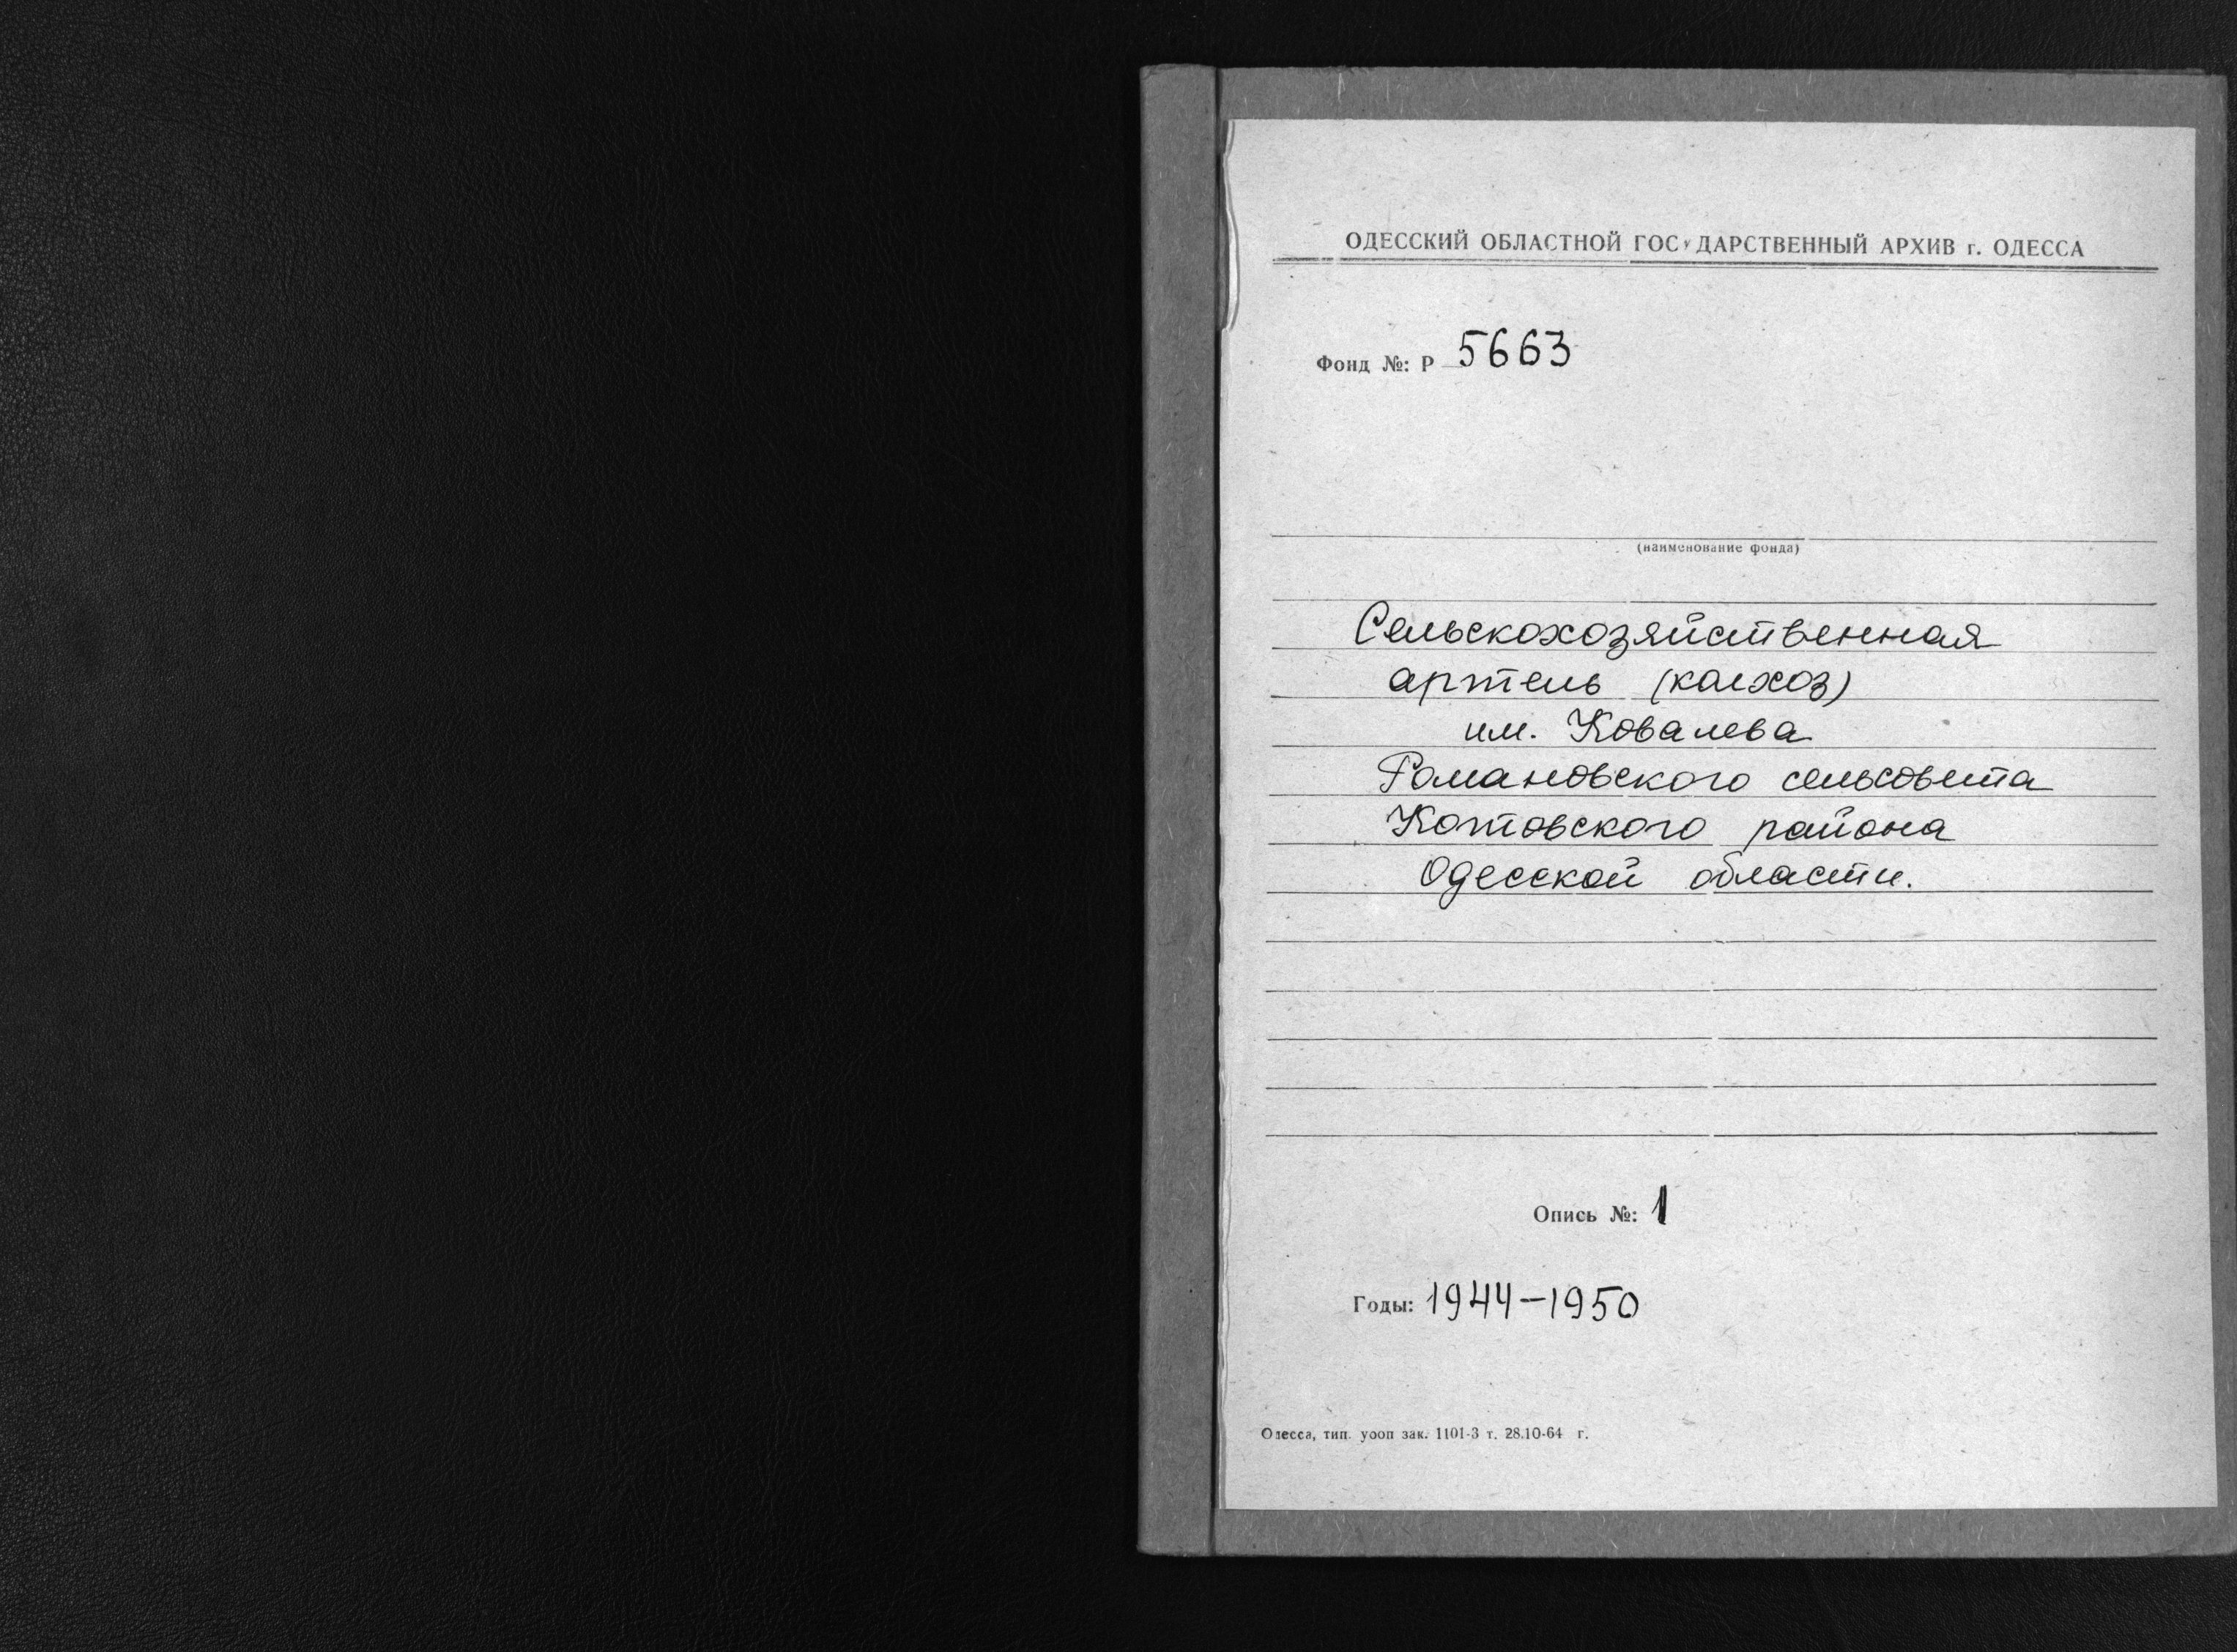 ОДЕССКИЙ ОБЛАСТНОЙ ГОСУДАРСТВЕННЫЙ АРХИВ г. ОДЕССА
Фонд №: Р 5663
(наименование фонда)
Сельскохозяйственная
артель (колхоз)
им. Ковалева
Романовского сельсовета
Котовского района
Одесской области.
Опись №: 1
Годы: 1944-1950
Одесса, тип. уооп зак. 1101-3 т. 28.10-64 г.